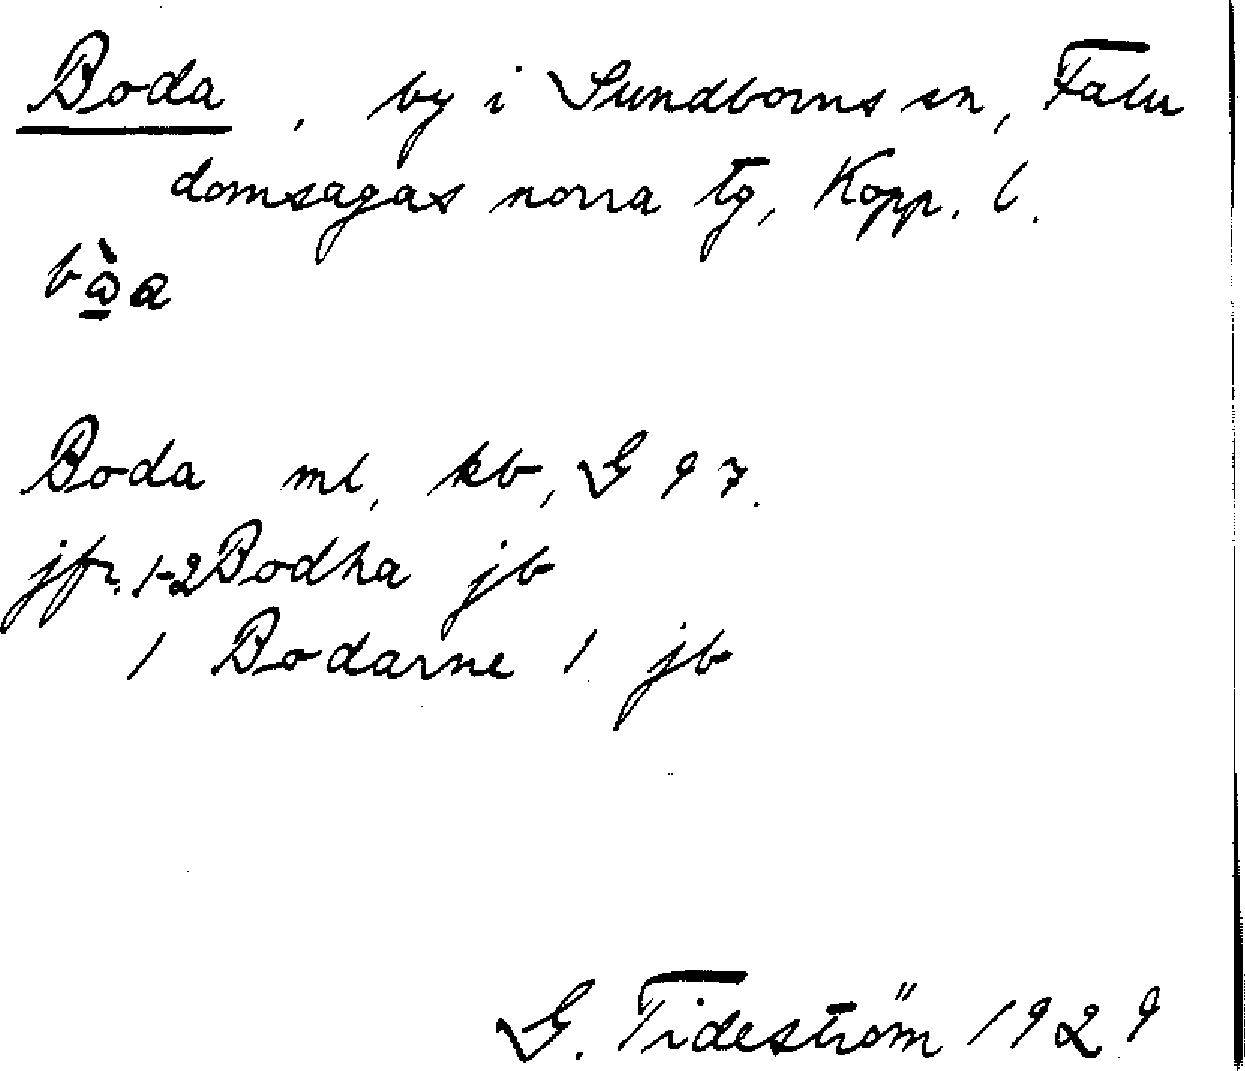 Boda, by i Sundborns sn, Falu
domsagas norra tg, Kopp. l.
bὼ̲a
Boda ml, kb, G 97.
jfr. 1-2 Bodha jb
1 Bodarne 1 jb
G. Tideström 1929